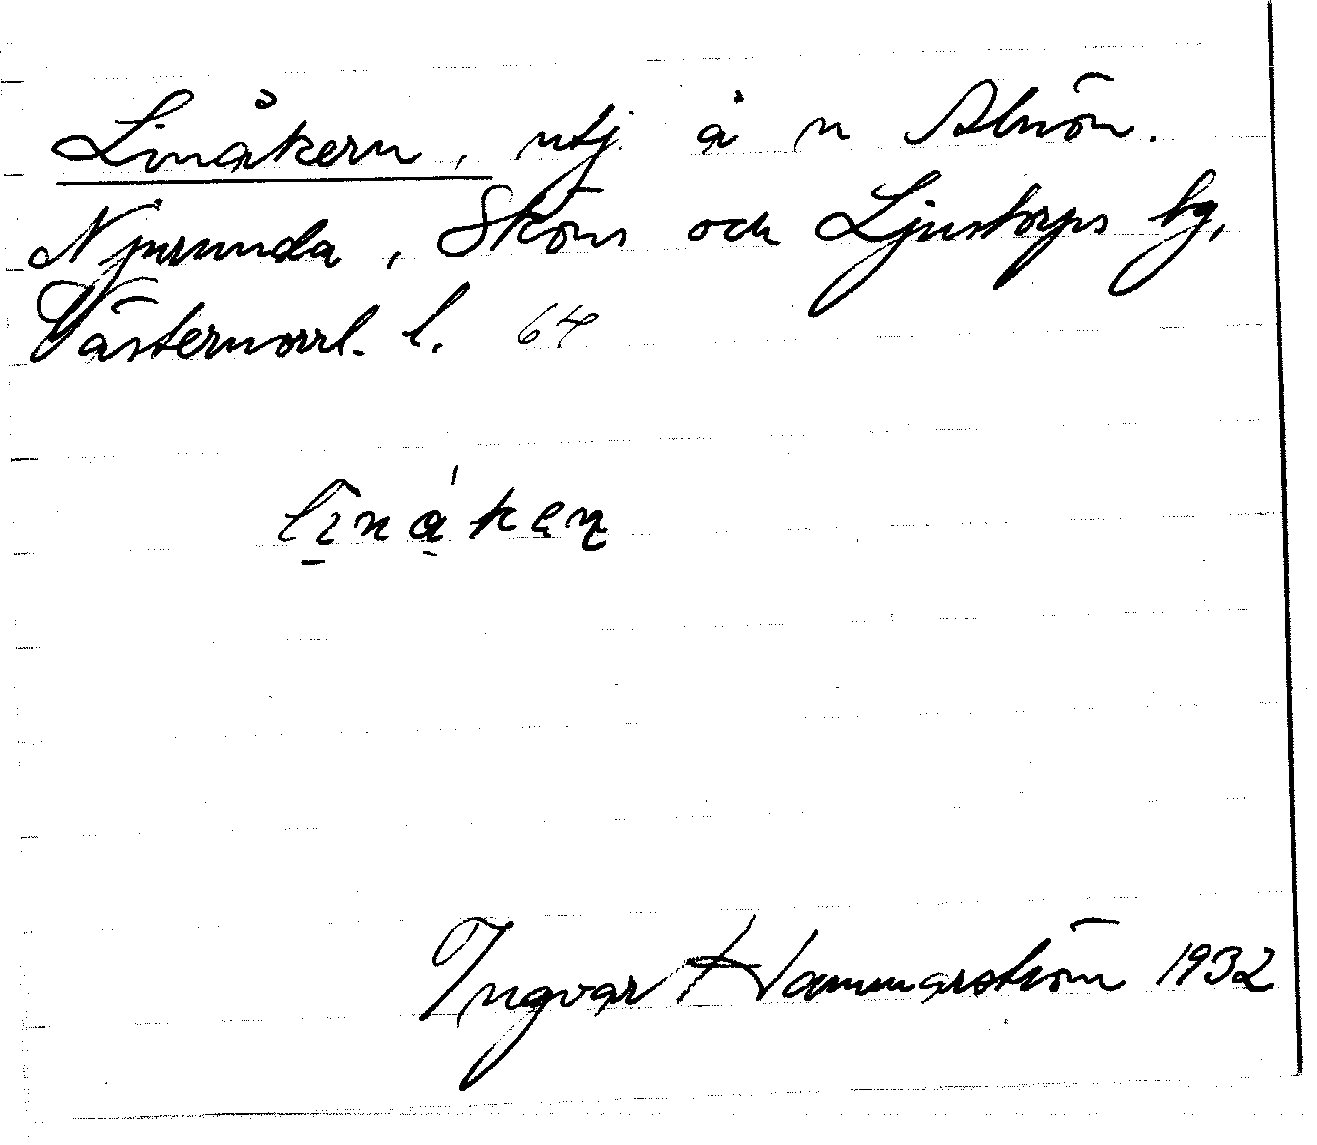 Linåkern, utj å n Alnön.
Njurunda, Sköns och Ljustorps tg,
Västernorrl. l. 64
līnåˈken̥
Ingvar Hammarström 1932